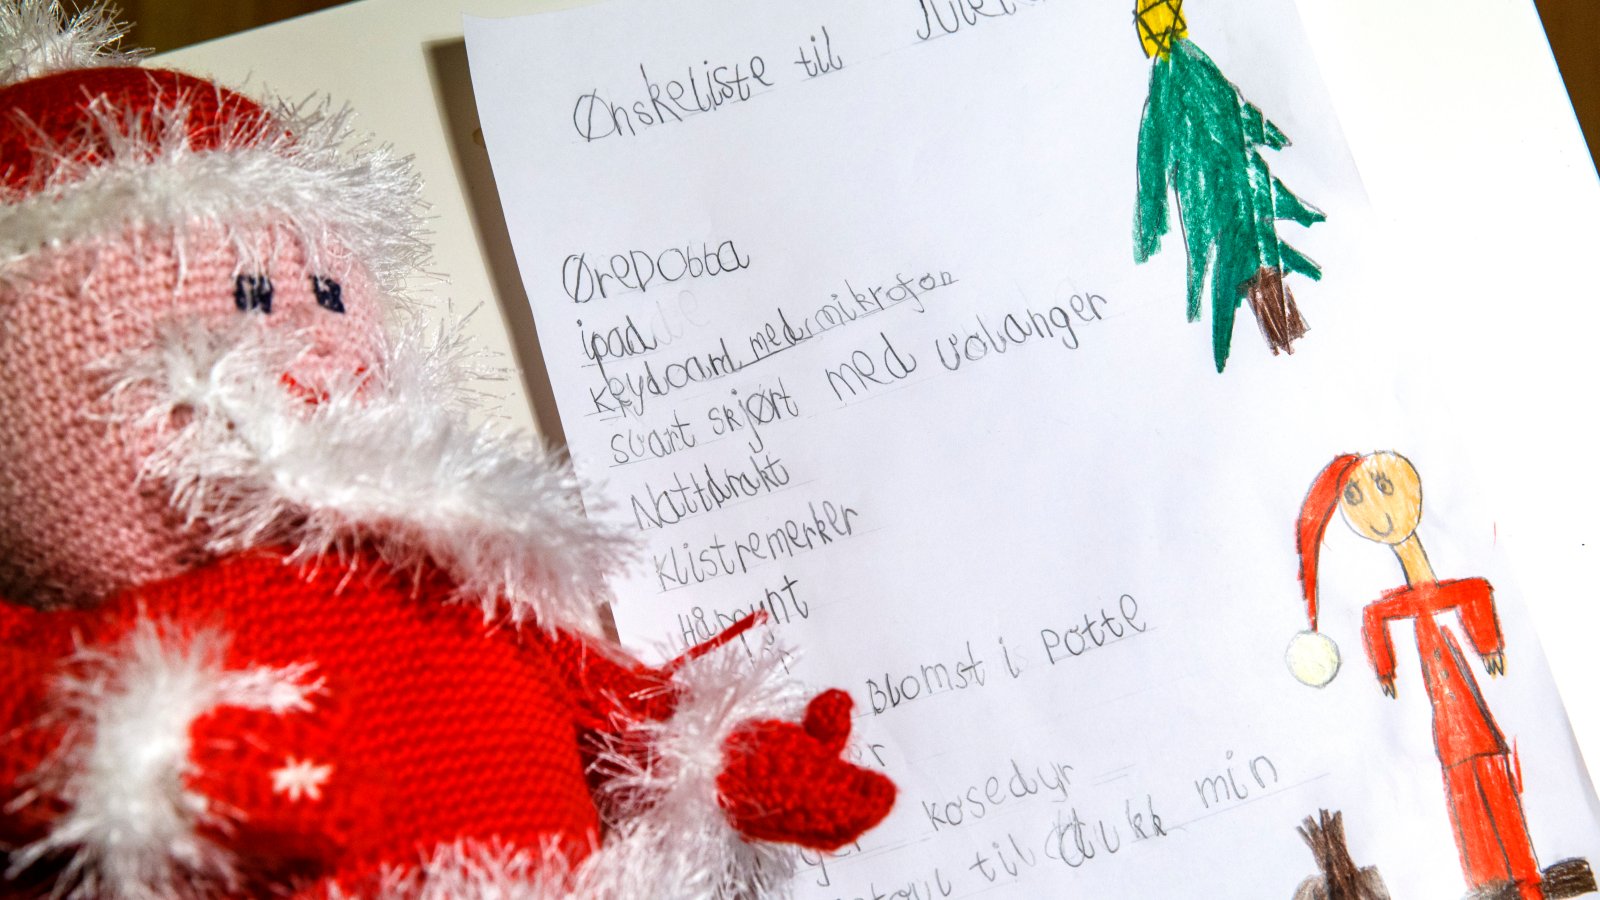 Ønskeliste til
ØrePobba
ipad
keyboard med mikrofon
svart skjørt med volanger
Nattdrakt
Klistremerker
Hårpynt
Blomst i potte
kosedyr
til dukk min